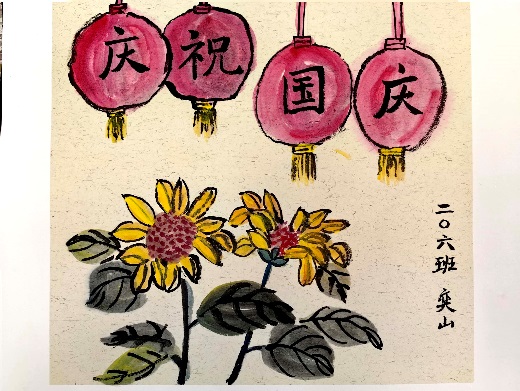 庆祝国庆
二〇六班 奕山